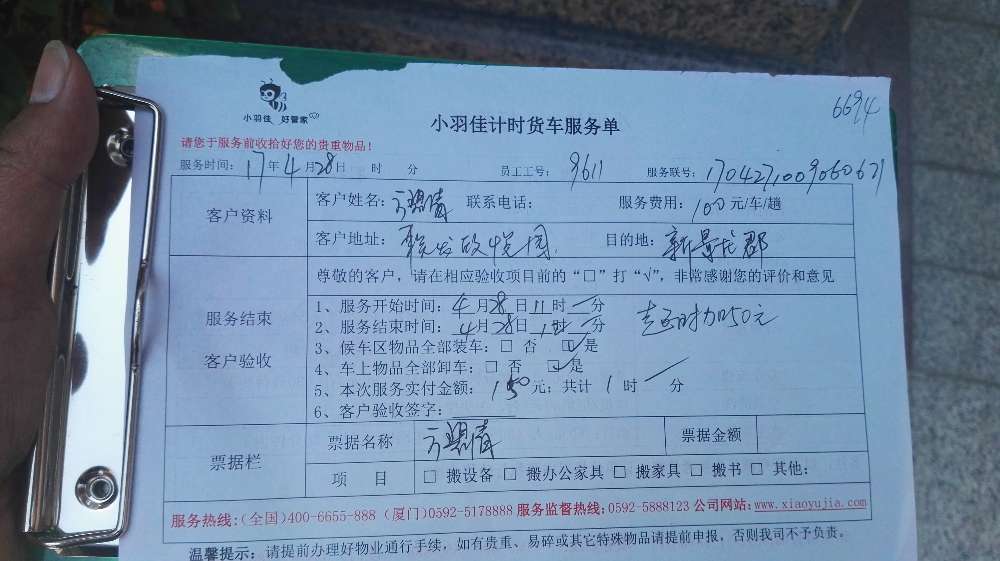 6694
小羽佳 好管家
小羽佳计时货车服务单
请您于服务前收拾好您的贵重物品！
服务时间：17年4月28日 时 分 员工工号：9611 服务联号：1704271009060621
客户资料
客户姓名： 联系电话： 服务费用：100元/车/趟
客户地址： 目的地：新景龙郡
服务结束
客户验收
尊敬的客户，请在相应验收项目前的“□”打“√”，非常感谢您的评价和意见
1、服务开始时间：4月28日11时一分
2、服务结束时间：4月28日1时一分 时加50元
3、候车区物品全部装车：□ 否 ☑ 是
4、车上物品全部卸车：□ 否 ☑ 是
5、本次服务实付金额：150元；共计 1 时 一 分
6、客户验收签字：
票据栏
票据名称 票据金额
项 目 □ 搬设备 □ 搬办公家具 □ 搬家具 □ 搬书 □ 其他：
服务热线：(全国)400-6655-888 (厦门)0592-5178888 服务监督热线：0592-5888123 公司网站：www.xiaoyujia.com
温馨提示：请提前办理好物业通行手续，如有贵重、易碎或其它特殊物品请提前申报，否则我司不予负责。